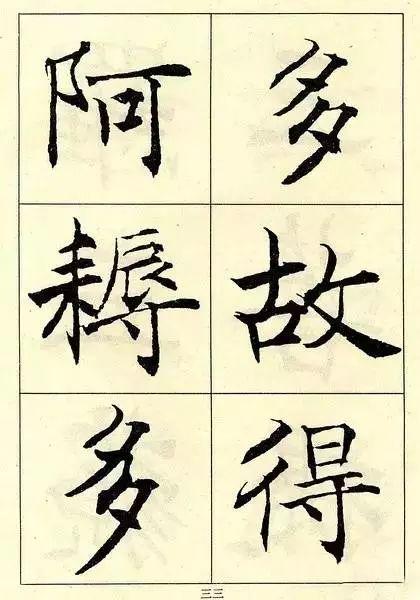 多故得
阿耨多
三三